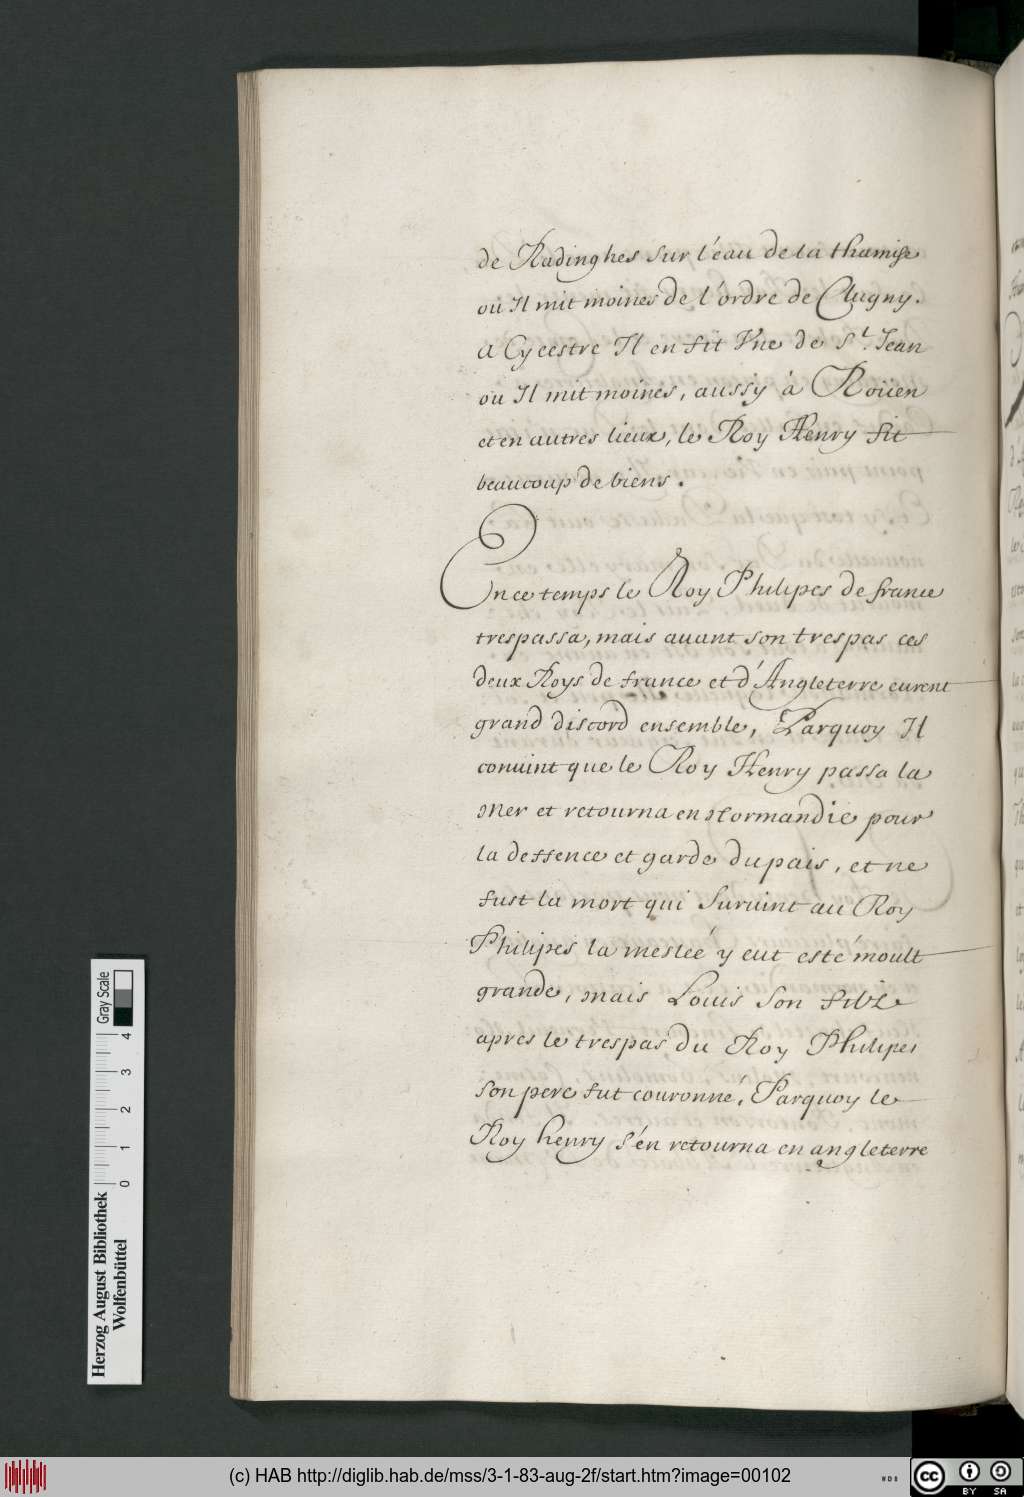 de Radinghes sur l'eau de la thamise
ou Il mit moines de l'ordre de Clugny.
A Cycestre Il en fit Vne de S.t Jean
ou Il mit moines, aussy à Roüen
et en autres lieux, le Roy Henry fit
beaucoup de biens.
En ce temps le Roy Philipes de france
trespassa, mais auant son trespas ces
deux Roys de france et d'Angleterre eurent
grand discord ensemble, Parquoy Il
conuint que le Roy Henry passa la
mer et retourna en Normandie pour
la deffence et garde du pais, et ne
fust la mort qui suruint au Roy
Philipes la mesleé y eut esté moult
grande, mais Louis son filz
apres le trespas du Roy Philipes
son pere fut couronné, Parquoy le
Roy henry s'én retourna en angleterre
Gray Scale
0 1 2 3 4
Herzog August Bibliothek
Wolfenbüttel
(c) HAB http://diglib.hab.de/mss/3-1-83-aug-2f/start.htm?image=00102
WDB
cc
BY SA